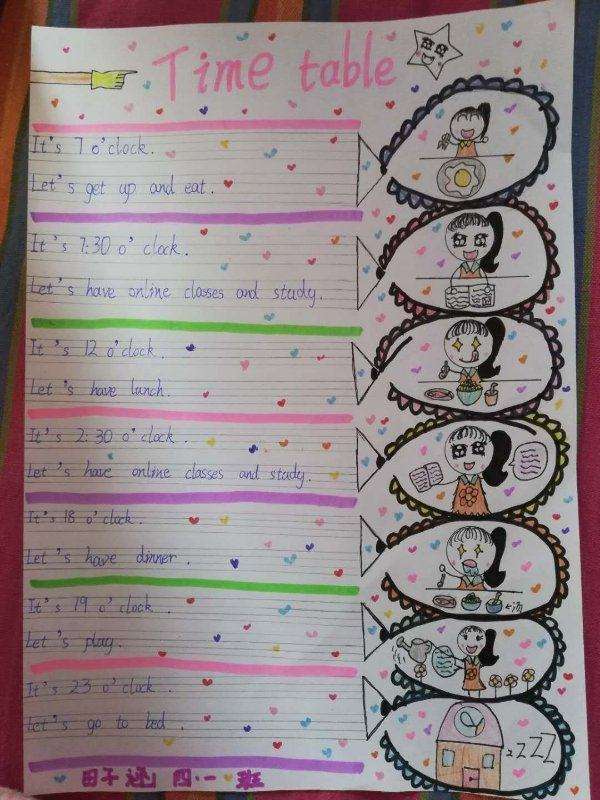 Time table
It's 7 o'clock.
Let's get up and eat.
It's 7:30 o'clock.
Let's have online classes and study.
It's 12 o'clock.
Let's have lunch.
It's 2:30 o'clock.
Let's have online classes and study.
It's 18 o'clock.
Let's have dinner.
It's 19 o'clock.
Let's play.
It's 23 o'clock.
Let's go to bed.
zZZZ
四·一班